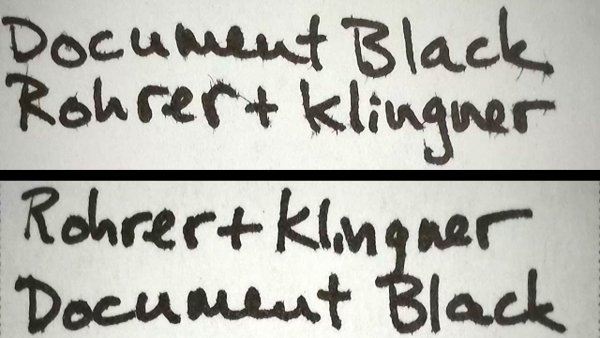 Document Black
Rohrer + Klingner
Rohrer + Klingner
Document Black